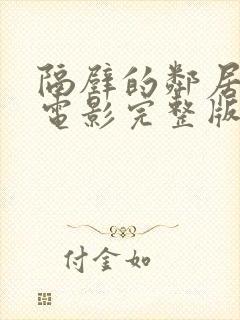 隔壁的鄰居
電影完整版
付金如